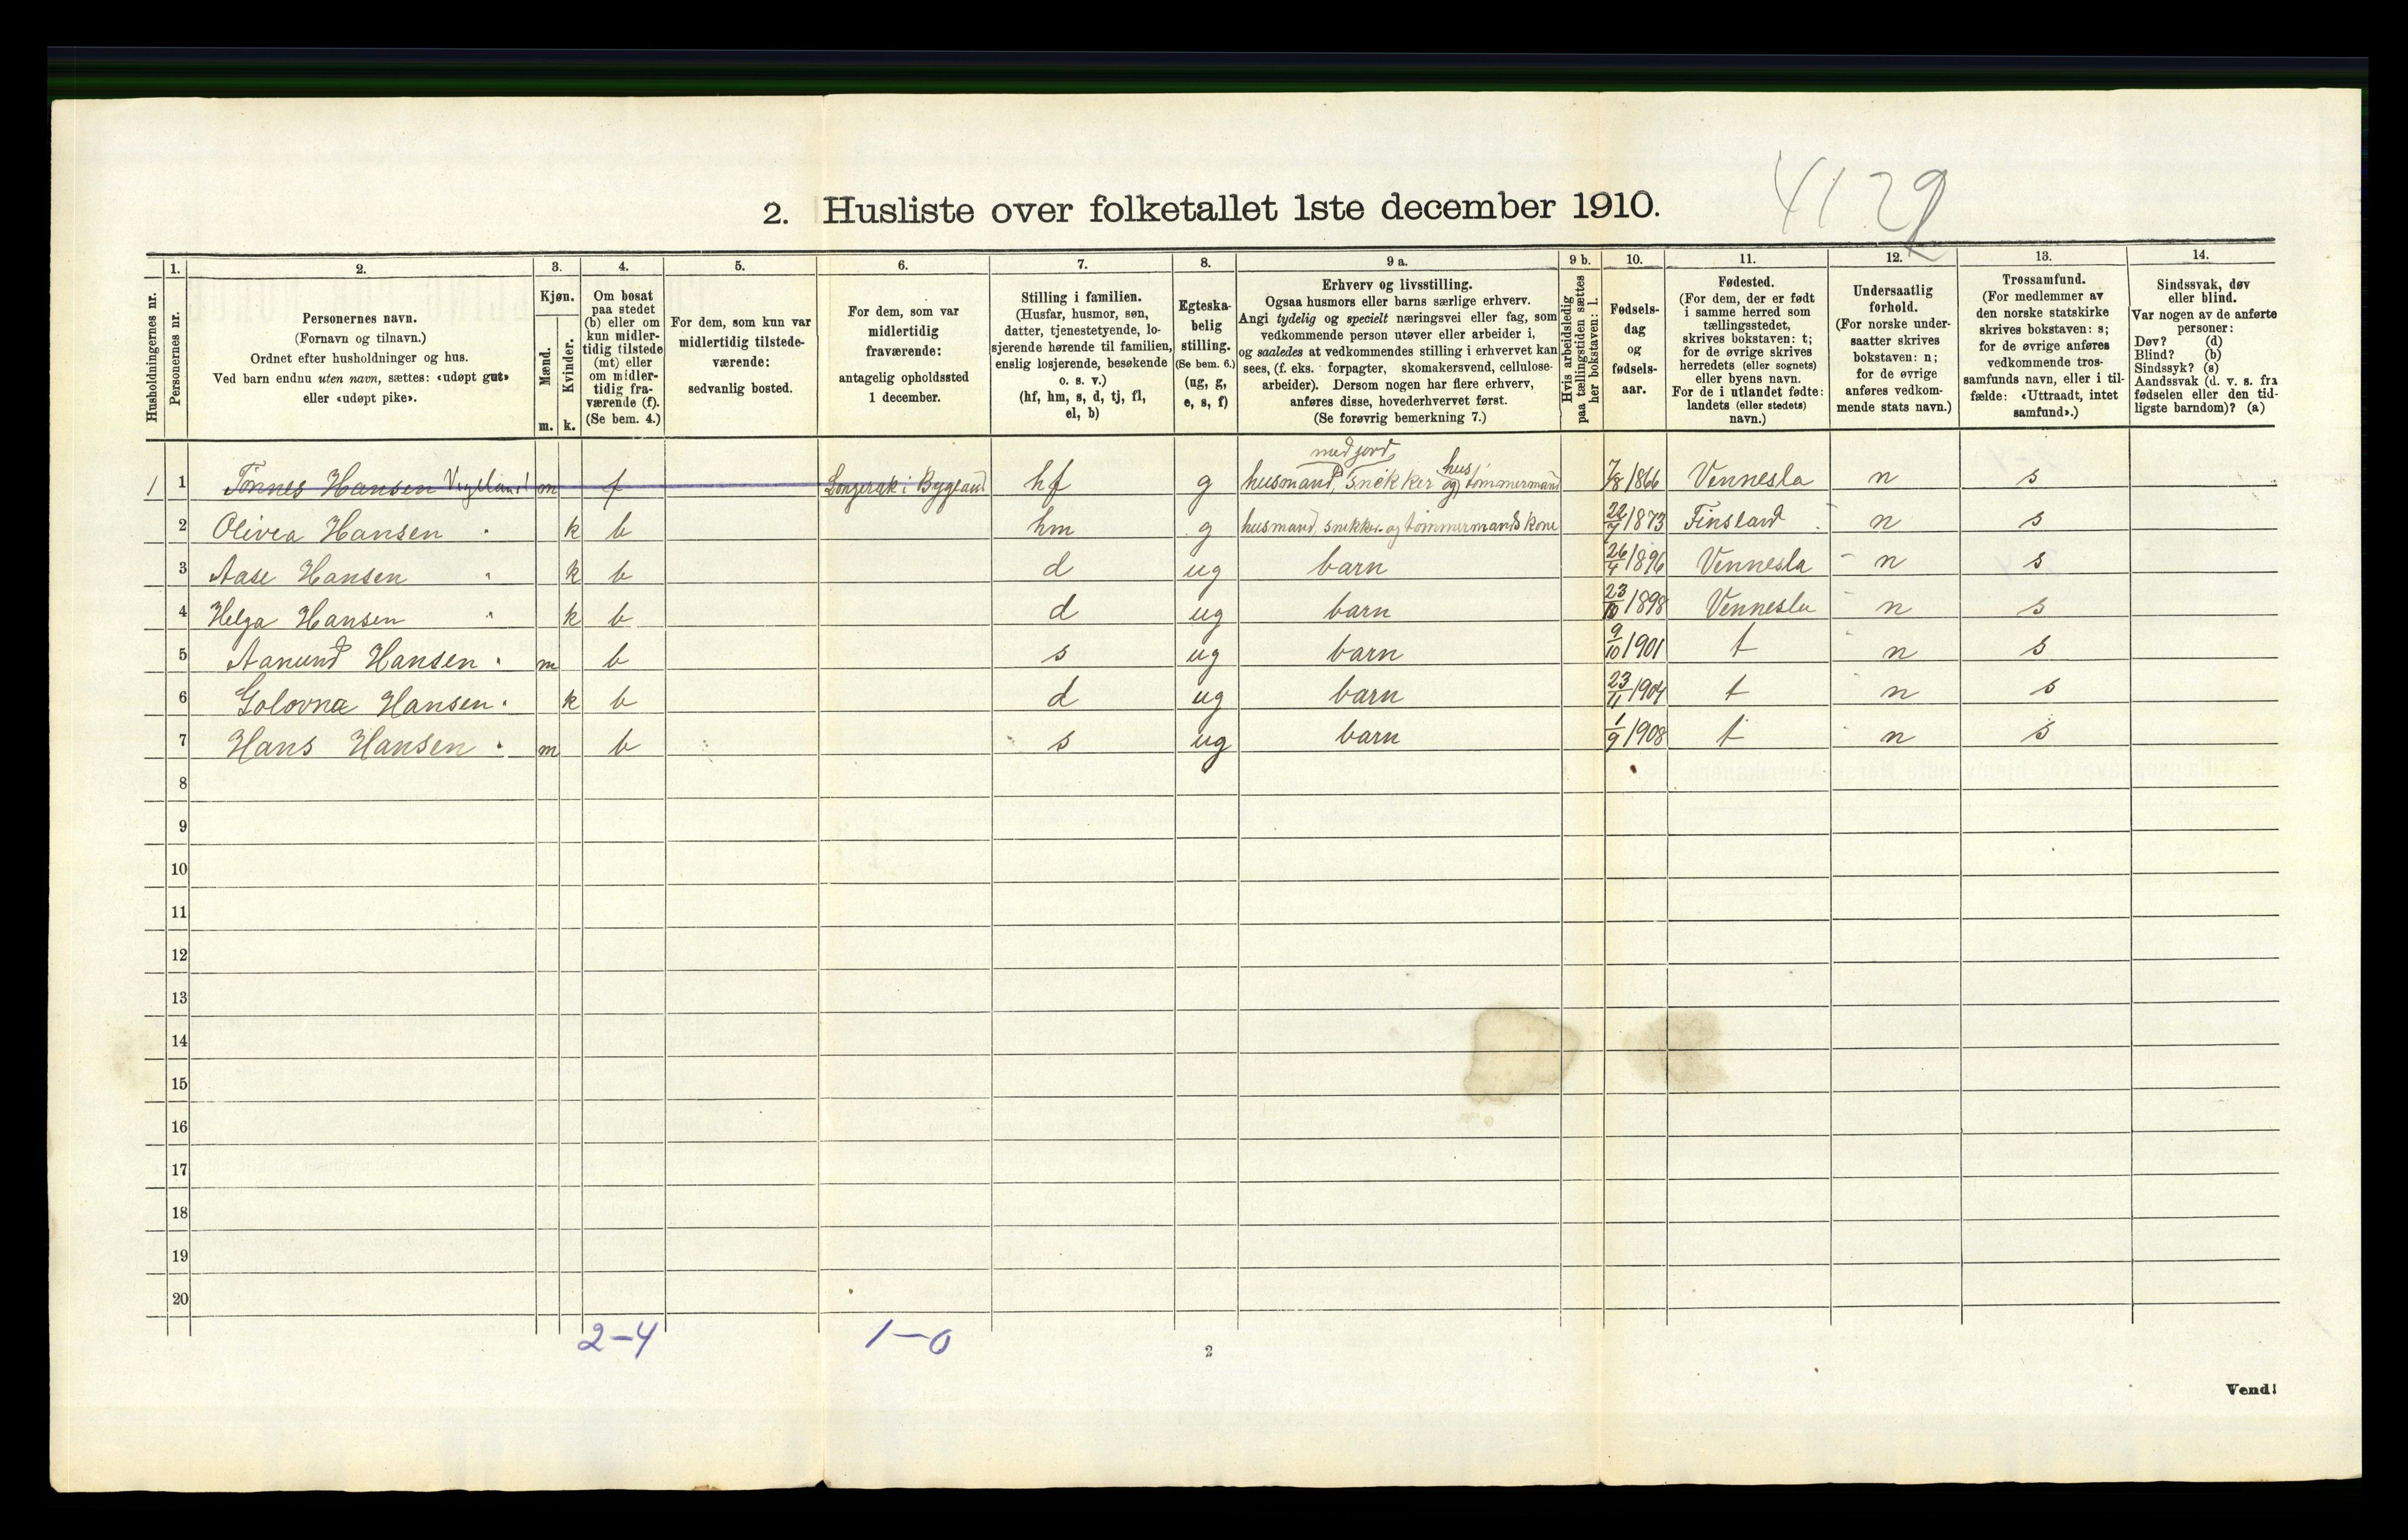 41.29
2. Husliste over folketallet 1ste december 1910.
Husholdningernes nr.
1.
Personernes nr.
2.
Personernes navn.
(Fornavn og tilnavn.)
Ordnet efter husholdninger og hus.
Ved barn endnu uten navn, sættes: «udøpt gut»
eller «udøpt pike».
3.
Kjøn.
Mænd.
Kvinder.
m. k.
4.
Om bosat
paa stedet
(b) eller om
kun midler-
tidig tilstede
(mt) eller
om midler-
tidig fra-
værende (f).
(Se bem. 4.)
5.
For dem, som kun var
midlertidig tilstede-
værende:
sedvanlig bosted.
6.
For dem, som var
midlertidig
fraværende:
antagelig opholdssted
1 december.
7.
Stilling i familien.
(Husfar, husmor, søn,
datter, tjenestetyende, lo-
sjerende hørende til familien,
enslig losjerende, besøkende
o. s. v.)
(hf, hm, s, d, tj, fl,
el, b)
8.
Egteska-
belig
stilling.
(Se bem. 6.)
(ug, g,
e, s, f)
9 a.
Erhverv og livsstilling.
Ogsaa husmors eller barns særlige erhverv.
Angi tydelig og specielt næringsvei eller fag, som
vedkommende person utøver eller arbeider i,
og saaledes at vedkommendes stilling i erhvervet kan
sees, (f. eks. forpagter, skomakersvend, cellulose-
arbeider). Dersom nogen har flere erhverv,
anføres disse, hovederhvervet først.
(Se forøvrig bemerkning 7.)
9 b.
Hvis arbeidsledig
paa tællingstiden sættes
her bokstaven: l.
10.
Fødsels-
dag
og
fødsels-
aar.
11.
Fødested.
(For dem, der er født
i samme herred som
tællingsstedet,
skrives bokstaven: t;
for de øvrige skrives
herredets (eller sognets)
eller byens navn.
For de i utlandet fødte:
landets (eller stedets)
navn.)
12.
Undersaatlig
forhold.
(For norske under-
saatter skrives
bokstaven: n;
for de øvrige
anføres vedkom-
mende stats navn.)
13.
Trossamfund.
(For medlemmer av
den norske statskirke
skrives bokstaven: s;
for de øvrige anføres
vedkommende tros-
samfunds navn, eller i til-
fælde: «Uttraadt, intet
samfund».)
14.
Sindssvak, døv
eller blind.
Var nogen av de anførte
personer:
Døv? (d)
Blind? (b)
Sindssyk? (s)
Aandssvak (d. v. s. fra
fødselen eller den tid-
ligste barndom)? (a)
med jord, hus
1 1 Tønnes Hansen Vigeland m f Longerak i Bygland hf g husmand, Snekker og tømmermand 7/8 1866 Vennesla n s
2 Olivea Hansen " k b hm g husmand, snekker og tømmermands kone 22/7 1873 Finsland n s
3 Aase Hansen " k b d ug barn 26/4 1896 Vennesla n s
4 Helga Hansen " k b d ug barn 23/10 1898 Vennesla n s
5 Aanund Hansen " m b s ug barn 9/10 1901 t n s
6 Golovna Hansen " k b d ug barn 23/11 1904 t n s
7 Hans Hansen " m b s ug barn 1/9 1908 t n s
8
9
10
11
12
13
14
15
16
17
18
19
20
2-4 1-0
2
Vend!